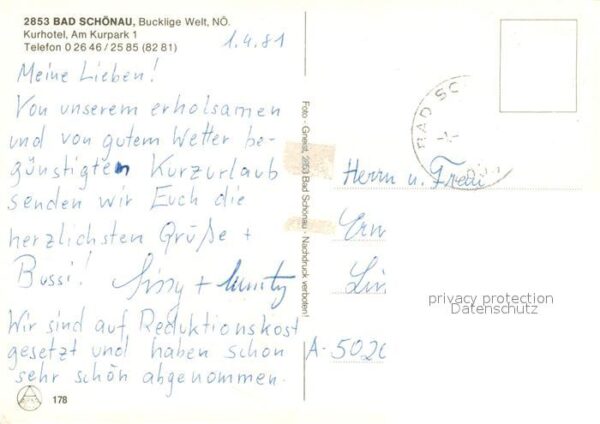 2853 BAD SCHÖNAU, Bucklige Welt, NÖ.
Kurhotel, Am Kurpark 1
Telefon 0 26 46 / 25 85 (82 81)
1.4.81
Meine Lieben!
Von unserem erholsamen
und von gutem Wetter be-
günstigten Kurzurlaub
senden wir Euch die
herzlichsten Grüße +
Bussi! Sissy +
Wir sind auf Reduktionskost
gesetzt und haben schon
sehr schön abgenommen.
178
Foto - Gneist, 2853 Bad Schönau - Nachdruck verboten!
BAD SC
Herrn u. Frau
Ern
A-5020
privacy protection
Datenschutz